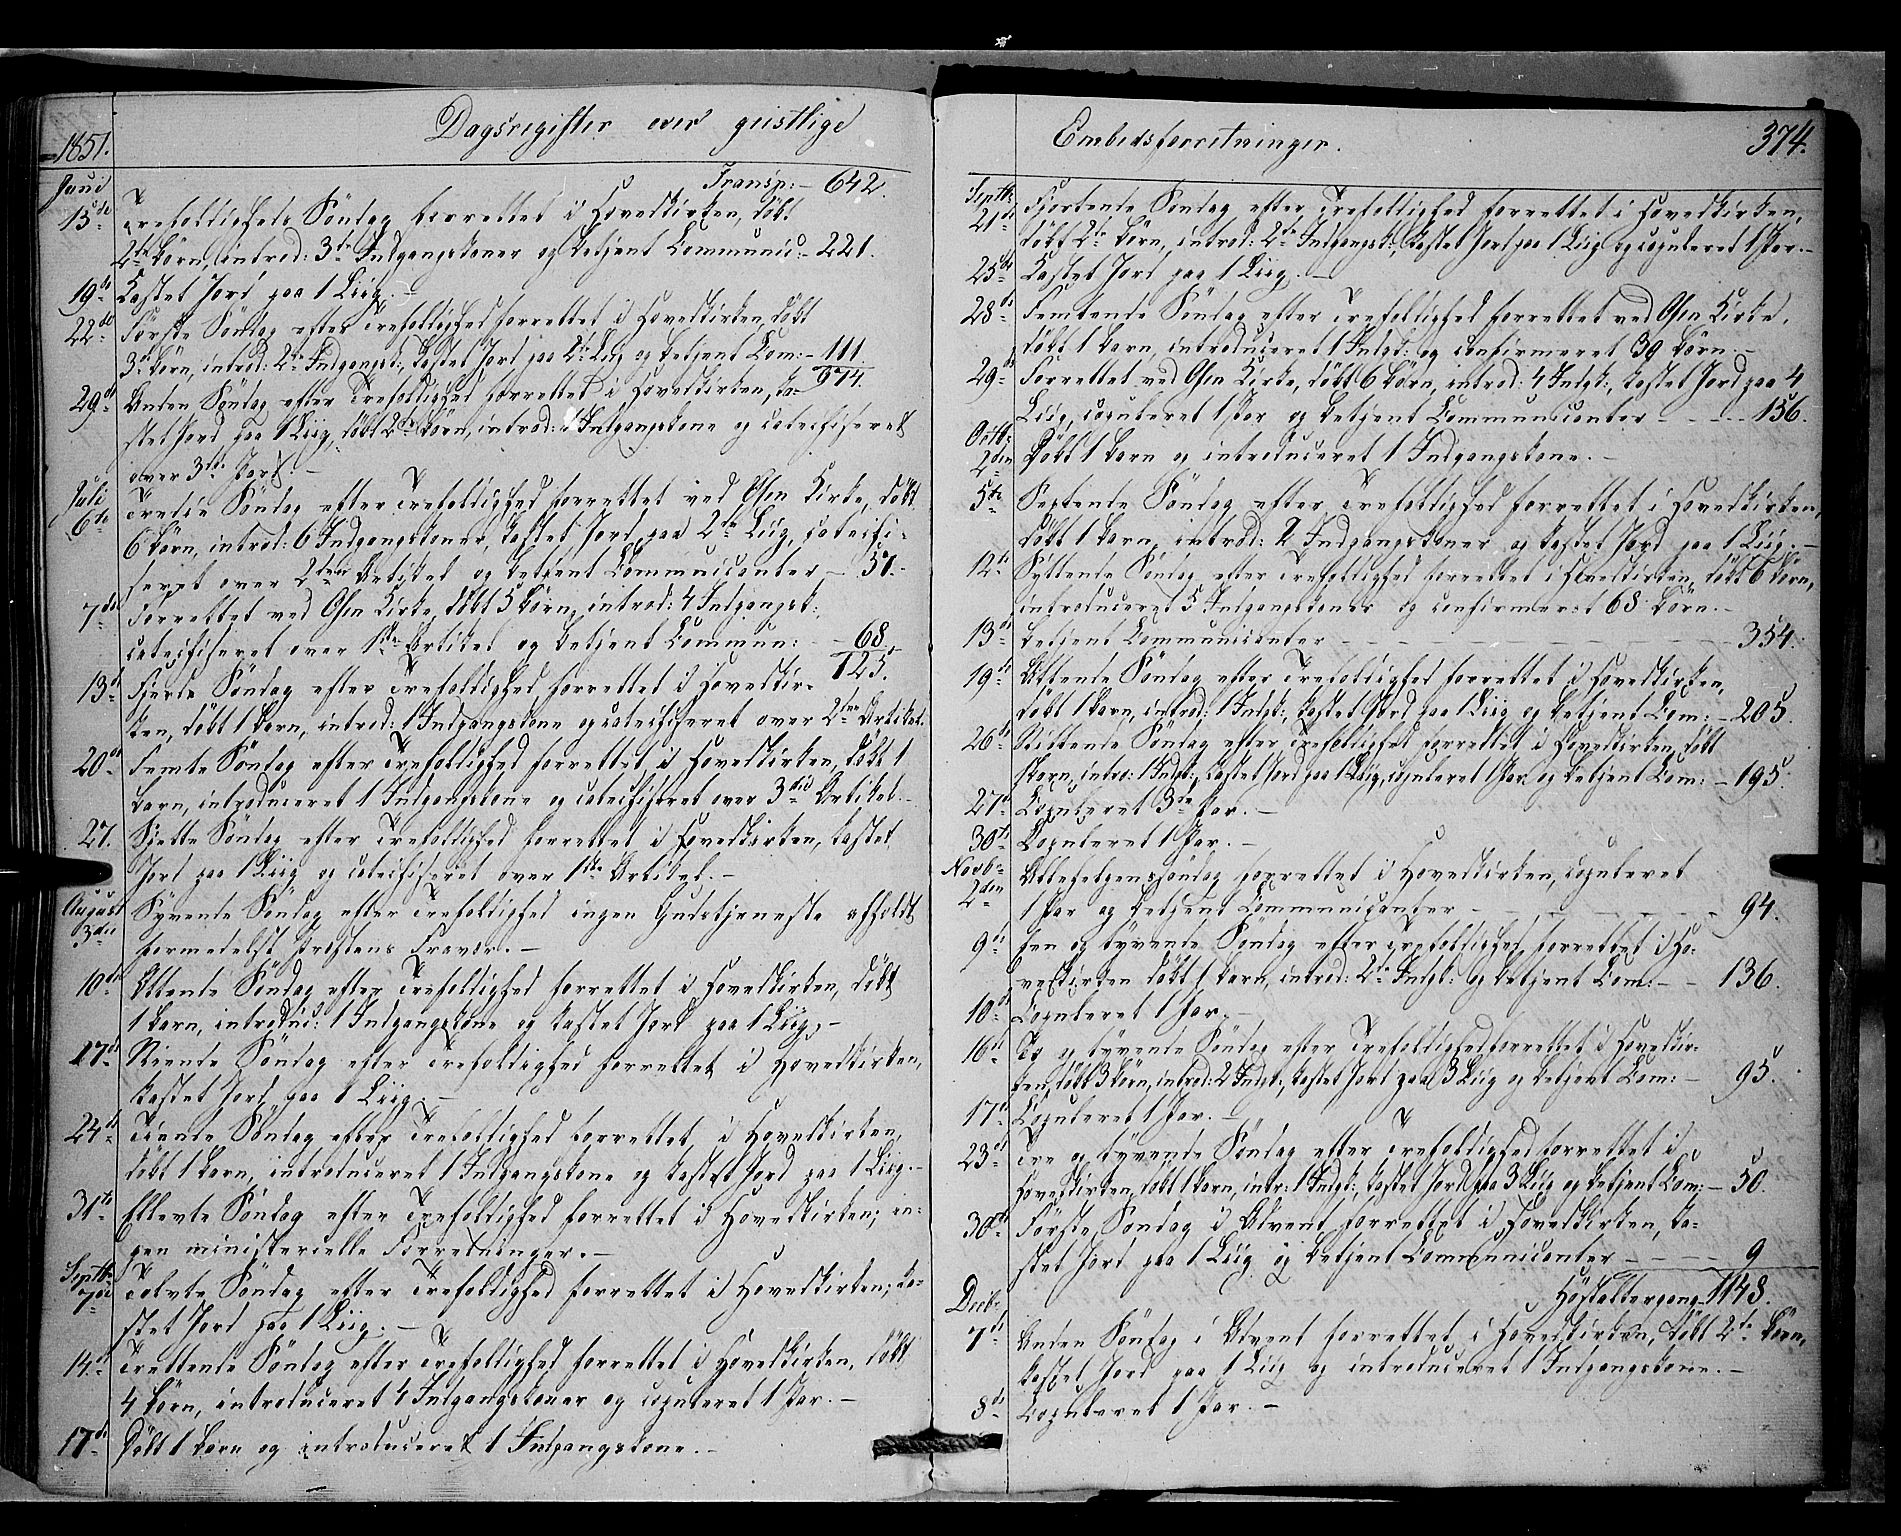 1851.
Dagsregister over geistlige
Juni
Transp: – 642.
15de Trefoldigheds Søndag forrettet i Hovedkirken, døbt
2de Børn, introd: 3de Indgangskoner og betjent Communic: – 221.
19de Kastet Jord paa 1 Liig. –
22de Første Søndag efter Trefoldighed forrettet i Hovedkirken, døbt
3de Børn, introd: 2de Indgangsk:, kastet Jord paa 2de Liig og betjent Com: – 111.
974.
29de Anden Søndag efter Trefoldighed forrettet i Hovedkirken, ka-
stet Jord paa 1 Liig, døbt 2de Børn, introd: 1 Indgangskone og catechiseret
over 3die Part. –
Juli
6te Tredie Søndag efter Trefoldighed forrettet ved Osen Kirke, døbt
6 Børn, introd: 6 Indgangskoner, kastet Jord paa 2de Liig, catechi-
seret over 2den Artikel og betjent Communicanter – 57.
7de Forrettet ved Osen Kirke, døbt 5 Børn, introd: 4 Indgangsk:
catechiseret over 1ste Artikel og betjent Commun: – 68.
125.
13de Fjerde Søndag efter Trefoldighed forrettet i Hovedkir-
ken, døbt 1 Barn, introd: 1 Indgangskone og catechiseret over 2den Artikel.
20de Femte Søndag efter Trefoldighed forrettet i Hovedkirken, døbt 1
Barn, introduceret 1 Indgangskone og catechiseret over 3die Artikel. –
27. Sjette Søndag efter Trefoldighed forrettet i Hovedkirken, kastet
Jord paa 1 Liig og catechiseret over 1ste Artikel. –
August
3die Syvende Søndag efter Trefoldighed ingen Gudstjeneste afholdt
formedelst Præstens Fravær. –
10de Ottende Søndag efter Trefoldighed forrettet i Hovedkirken, døbt
1 Barn, introduc: 1 Indgangskone og kastet Jord paa 1 Liig. –
17de Niende Søndag efter Trefoldighed forrettet i Hovedkirken,
kastet Jord paa 1 Liig. –
24de Tiende Søndag efter Trefoldighed forrettet i Hovedkirken,
døbt 1 Barn, introduceret 1 Indgangskone og kastet Jord paa 1 Liig. –
31te Ellevte Søndag efter Trefoldighed forrettet i Hovedkirken; in-
gen ministerielle Forretninger. –
Septbr
7de Tolvte Søndag efter Trefoldighed forrettet i Hovedkirken; ka-
stet Jord paa 1 Liig. –
14de Trettende Søndag efter Trefoldighed forrettet i Hovedkirken, døbt
4 Børn, introduceret 4 Indgangskoner og copuleret 1 Par. –
17de Døbt 1 Barn og introduceret 1 Indgangskone. –
Embedsforretninger.
374.
Septbr
21de Fjortende Søndag efter Trefoldighed forrettet i Hovedkirken,
døbt 2de Børn, introd: 2de Indgangsk:, kastet Jord paa 1 Liig og copuleret 1 Par. –
25de Kastet Jord paa 1 Liig. –
28de Femtende Søndag efter Trefoldighed forrettet ved Osen Kirke,
døbt 1 Barn, introduceret 1 Indgk: og confirmeret 39 Børn. –
29de Forrettet ved Osen Kirke, døbt 6 Børn, introd: 4 Indgk:, kastet Jord paa 4
Liig, copuleret 1 Par og betjent Communicanter – – – – 156.
Octbr
2den Døbt 1 Barn og introduceret 1 Indgangskone. –
5te Sextende Søndag efter Trefoldighed forrettet i Hovedkirken,
døbt 1 Barn, introd: 2 Indgangskoner og kastet Jord paa 1 Liig. –
12te Syttende Søndag efter Trefoldighed forrettet i Hovedkirken, døbt 6 Børn,
introduceret 5 Indgangskoner og confirmeret 68 Børn. –
13de betjent Communicanter – – – – – – – – 354.
19de Attende Søndag efter Trefoldighed forrettet i Hovedkirken,
døbt 1 Barn, introd: 1 Indgk:, kastet Jord paa 1 Liig og betjent Com: – 205.
26de Nittende Søndag efter Trefoldighed forrettet i Hovedkirken, døbt
1 Barn, intro: 1 Indgk:, kastet Jord paa 1 Liig, copuleret 1 Par og betjent Com: – 195.
27de Copuleret 3de Par. –
30te Copuleret 1 Par. –
Novbr
2den Allehelgenssøndag forrettet i Hovedkirken, copuleret
1 Par og betjent Communicanter – – – – – – – 94.
9de Een og tyvende Søndag efter Trefoldighed forrettet i Ho-
vedkirken døbt 1 Barn, introd: 2de Indgk: og betjent Com: – – 136.
10de Copuleret 1 Par. –
16de To og tyvende Søndag efter Trefoldighed forrettet i Hovedkir-
ken, døbt 3 Børn, introd: 2 Indgk:, kastet Jord paa 3 Liig og betjent Com: – 95.
17de Copuleret 1 Par. –
23de Tre og tyvende Søndag efter Trefoldighed forrettet i
Hovedkirken, døbt 1 Barn, intr: 1 Indgk:, kastet Jord paa 3 Liig og betjent Com: – 50.
30te Første Søndag i Advent forrettet i Hovedkirken, ka-
stet Jord paa 1 Liig og betjent Communicanter – – – – 9
Høstaltergang – 1148.
Decbr
7de Anden Søndag i Advent forrettet i Hovedkirken, døbt 2de Børn,
kastet Jord paa 1 Liig og introduceret 1 Indgangskone. –
8de Copuleret 1 Par. –